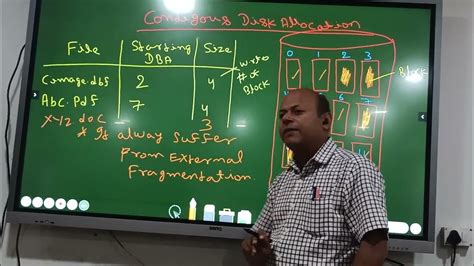 Contigous Disk Allocation
File Starting DBA Size
w.r.to # of Block
C.image.dbf 2 4
Abc.Pdf 7 4
XYZ doc _ 3 _
* It alway suffer
From External
Fragmentation
0 1 2 3
Block
6 7
BENQ